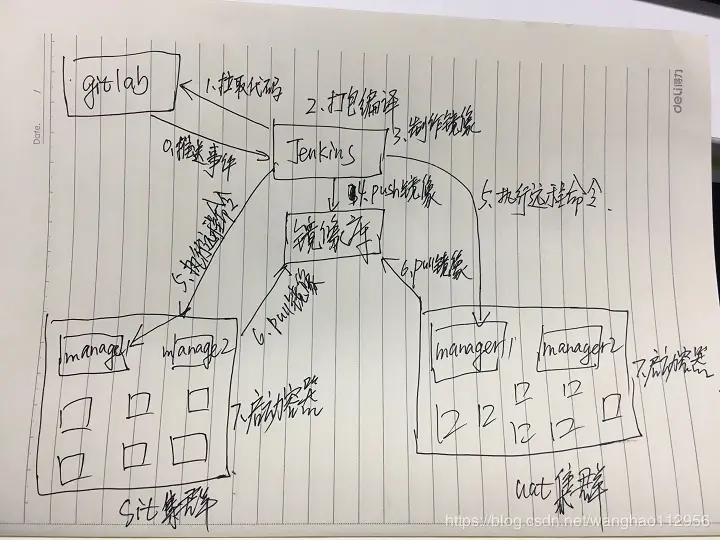 Date. /
deli 得力
gitlab
1.拉取代码
2.打包编译
3.制作镜像
0.推送事件
Jenkins
4.push镜像
5.执行远程命令
5.执行远程命令.
镜像库
6.pull镜像
6.pull镜像
manager1
manage2
7.启动容器
sit集群
manager1
manager2
7.启动容器
uat集群
https://blog.csdn.net/wanghao112956